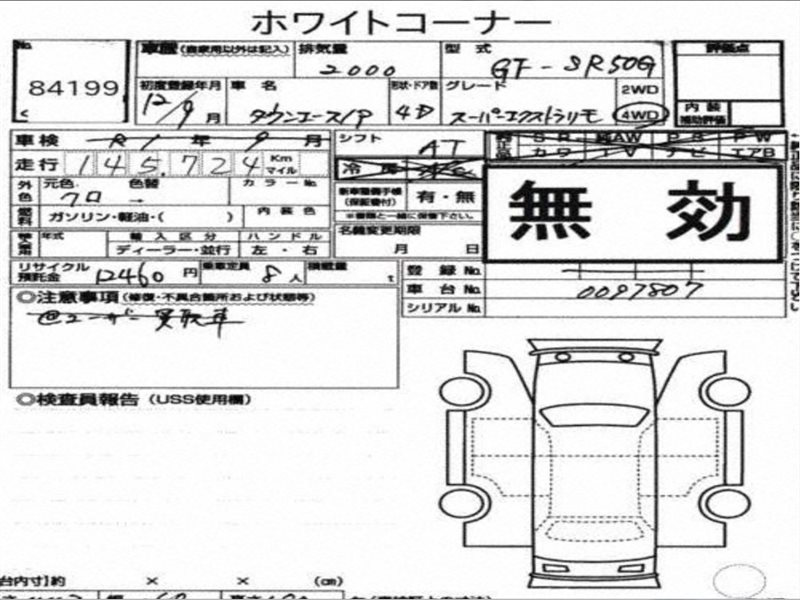 ホワイトコーナー
No.
84199
車歴 (自家用以外は記入)
排気量
2000
型 式
GF-SR50G
評価点
初度登録年月
12/9 月
車 名
タウンエース
形状・ドア数
4D
グレード
スーパーエクストラリモ
2WD
4WD
内 装
補助評価
車検 年 9 月
シフト
AT
走行 145,724 Km マイル
冷 房
S R AW P S P W
カ ワ T V ナビ エアB
外色
元色 色替 カ ラ ー No.
クロ →
燃料
ガソリン・軽油・( )
内 装 色
新車整備手帳
(保証書付)
有・無
※書類と一緒に保管下さい。
無 効
年式
輸 入 区 分
ディーラー・並行
ハ ン ド ル
左 ・ 右
名義変更期限
月 日
リサイクル
預託金
12460 円
乗車定員 8 人
積載量 t
登 録 No.
車 台 No. 0097807
シリアル No.
◎注意事項 (修復・不具合箇所および状態等)
ユーザー買取車
◎検査員報告 (USS使用欄)
台内寸】約 × × (cm)